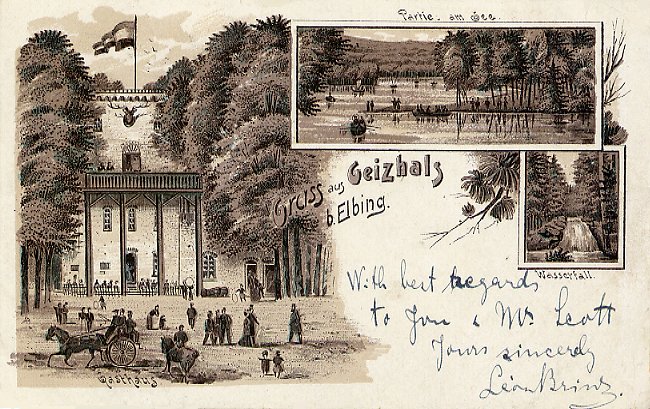 Partie am See.
Gruss aus Geizhals
b. Elbing.
Wasserfall.
With best regards
to you & Mr Scott
Yours sincerely
Léon
Gasthaus